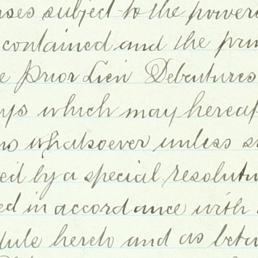 ses subject to the powers
contained and the prin
e Prior Lien Debentures
ys which may hereaf
no whatsoever unless s
ed by a special resolut
ed in accordance with
dule hereto and as betw